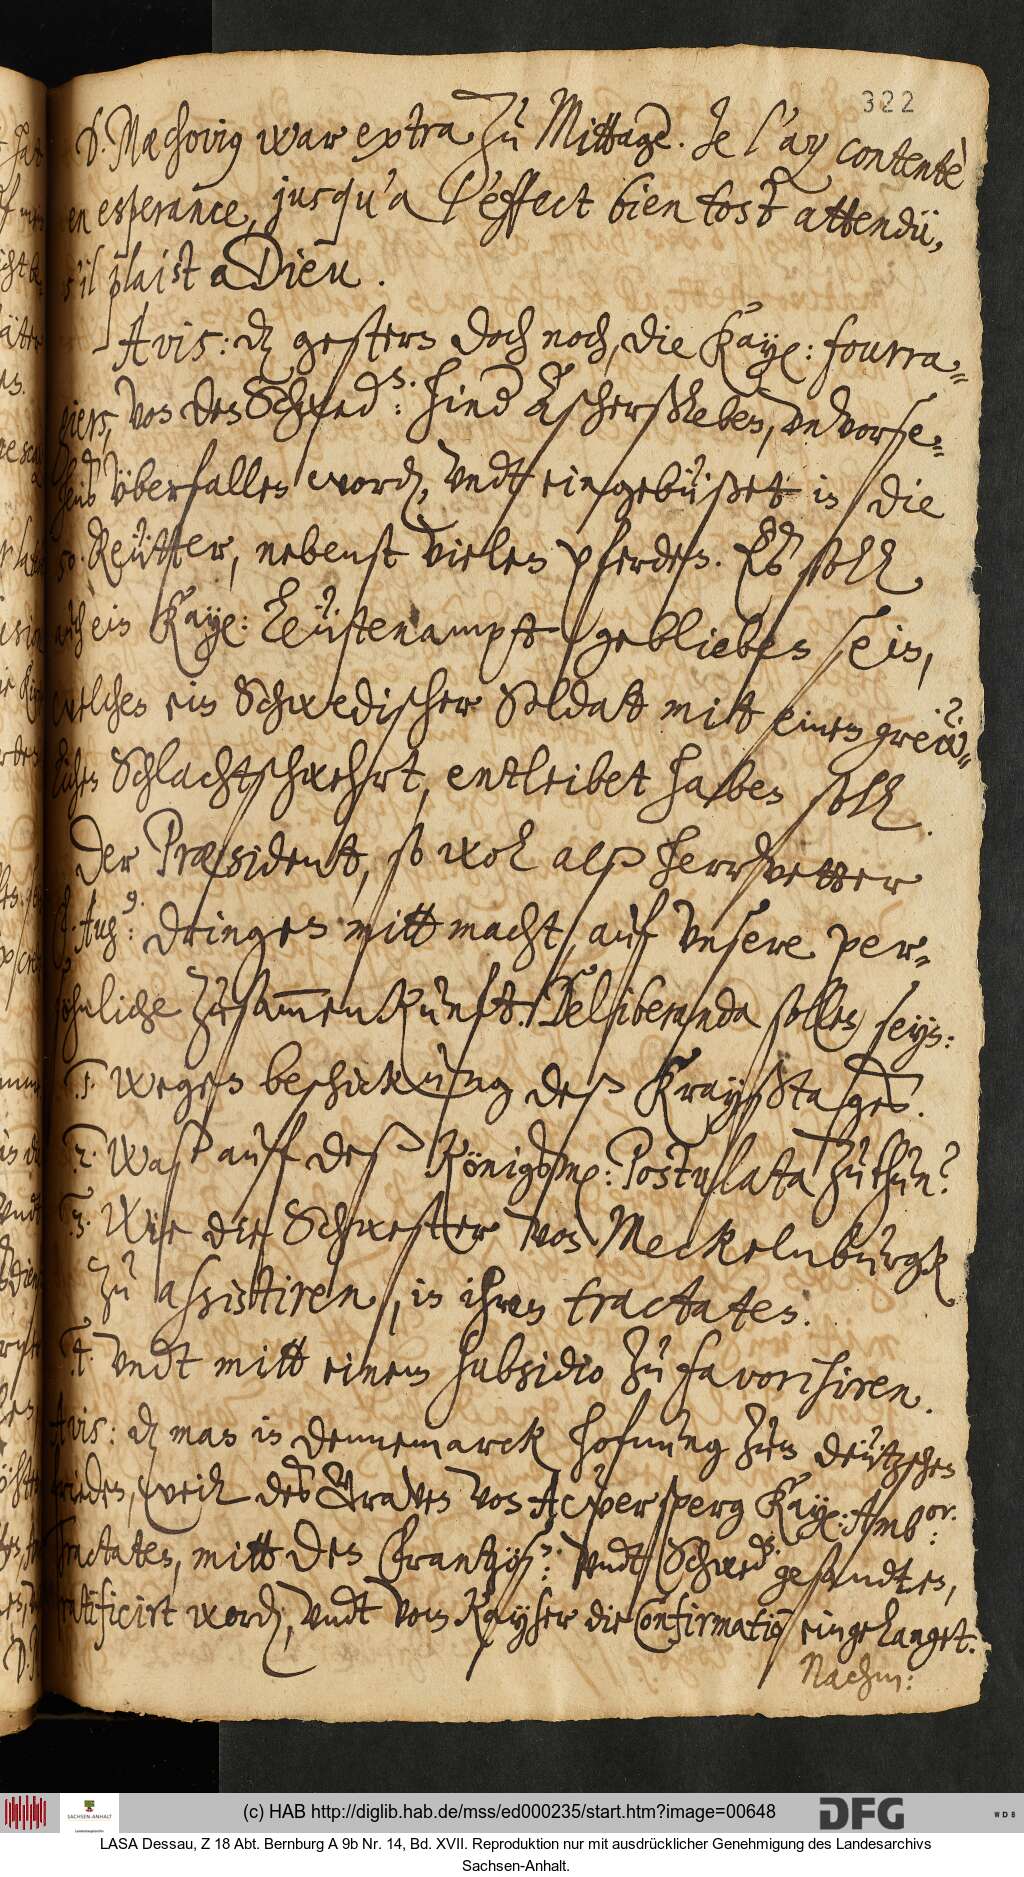 322
D. Mechovius war extra zu Mittage. Je l'ay contentè
en esperance, jusqu'a l'effect bien tost attendü,
s'il plaist a Dieu.
Avis: dz gestern doch noch, die Kaye: fourra-
giers, von den Schwed:s. hinder Aschersleben, unvorse-
hens überfallen word, undt eingebüßet in die
50. Reütter, nebenst vielen pferden. Es soll
auch ein Kaye: Leütenampt geblieben sein,
welchen ein Schwedischer Soldat mitt einem grew-
lichen Schlachtschwehrt, entleibet haben soll.
Der Præsident, so wol alß herrvetter
F. Aug:g. dringen mitt macht, auf unsere per-
söhnliche zusammenkunft. Deliberanda sollen seyn:
1. Wegen beschickung deß Krayßtages.
2. Waß auff deß Königs Postulata zu thun?
3. Wie die Schwester von Meckelnburgk
zu assistiren, in ihren tractaten.
4. Undt mitt einem subsidio zu favorisiren.
Avis: dz man in Dennemarck hofnung zum deützschen
frieden, weil des Graven von Aversperg Kaye: Amb:or.
tractaten, mitt den Frantzös:n: undt Schwed:s. gesandten,
ratificirt word, undt vom Kayser die Confirmation eingelanget.
Nachm:
(c) HAB http://diglib.hab.de/mss/ed000235/start.htm?image=00648
SACHSEN-ANHALT
DFG
WDB
LASA Dessau, Z 18 Abt. Bernburg A 9b Nr. 14, Bd. XVII. Reproduktion nur mit ausdrücklicher Genehmigung des Landesarchivs
Sachsen-Anhalt.